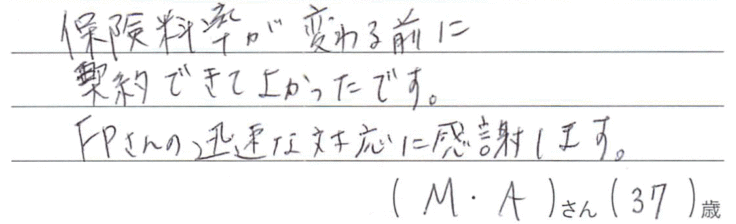 保険料率が変わる前に
契約できてよかったです。
FPさんの迅速な対応に感謝します。
(M・A)さん(37)歳